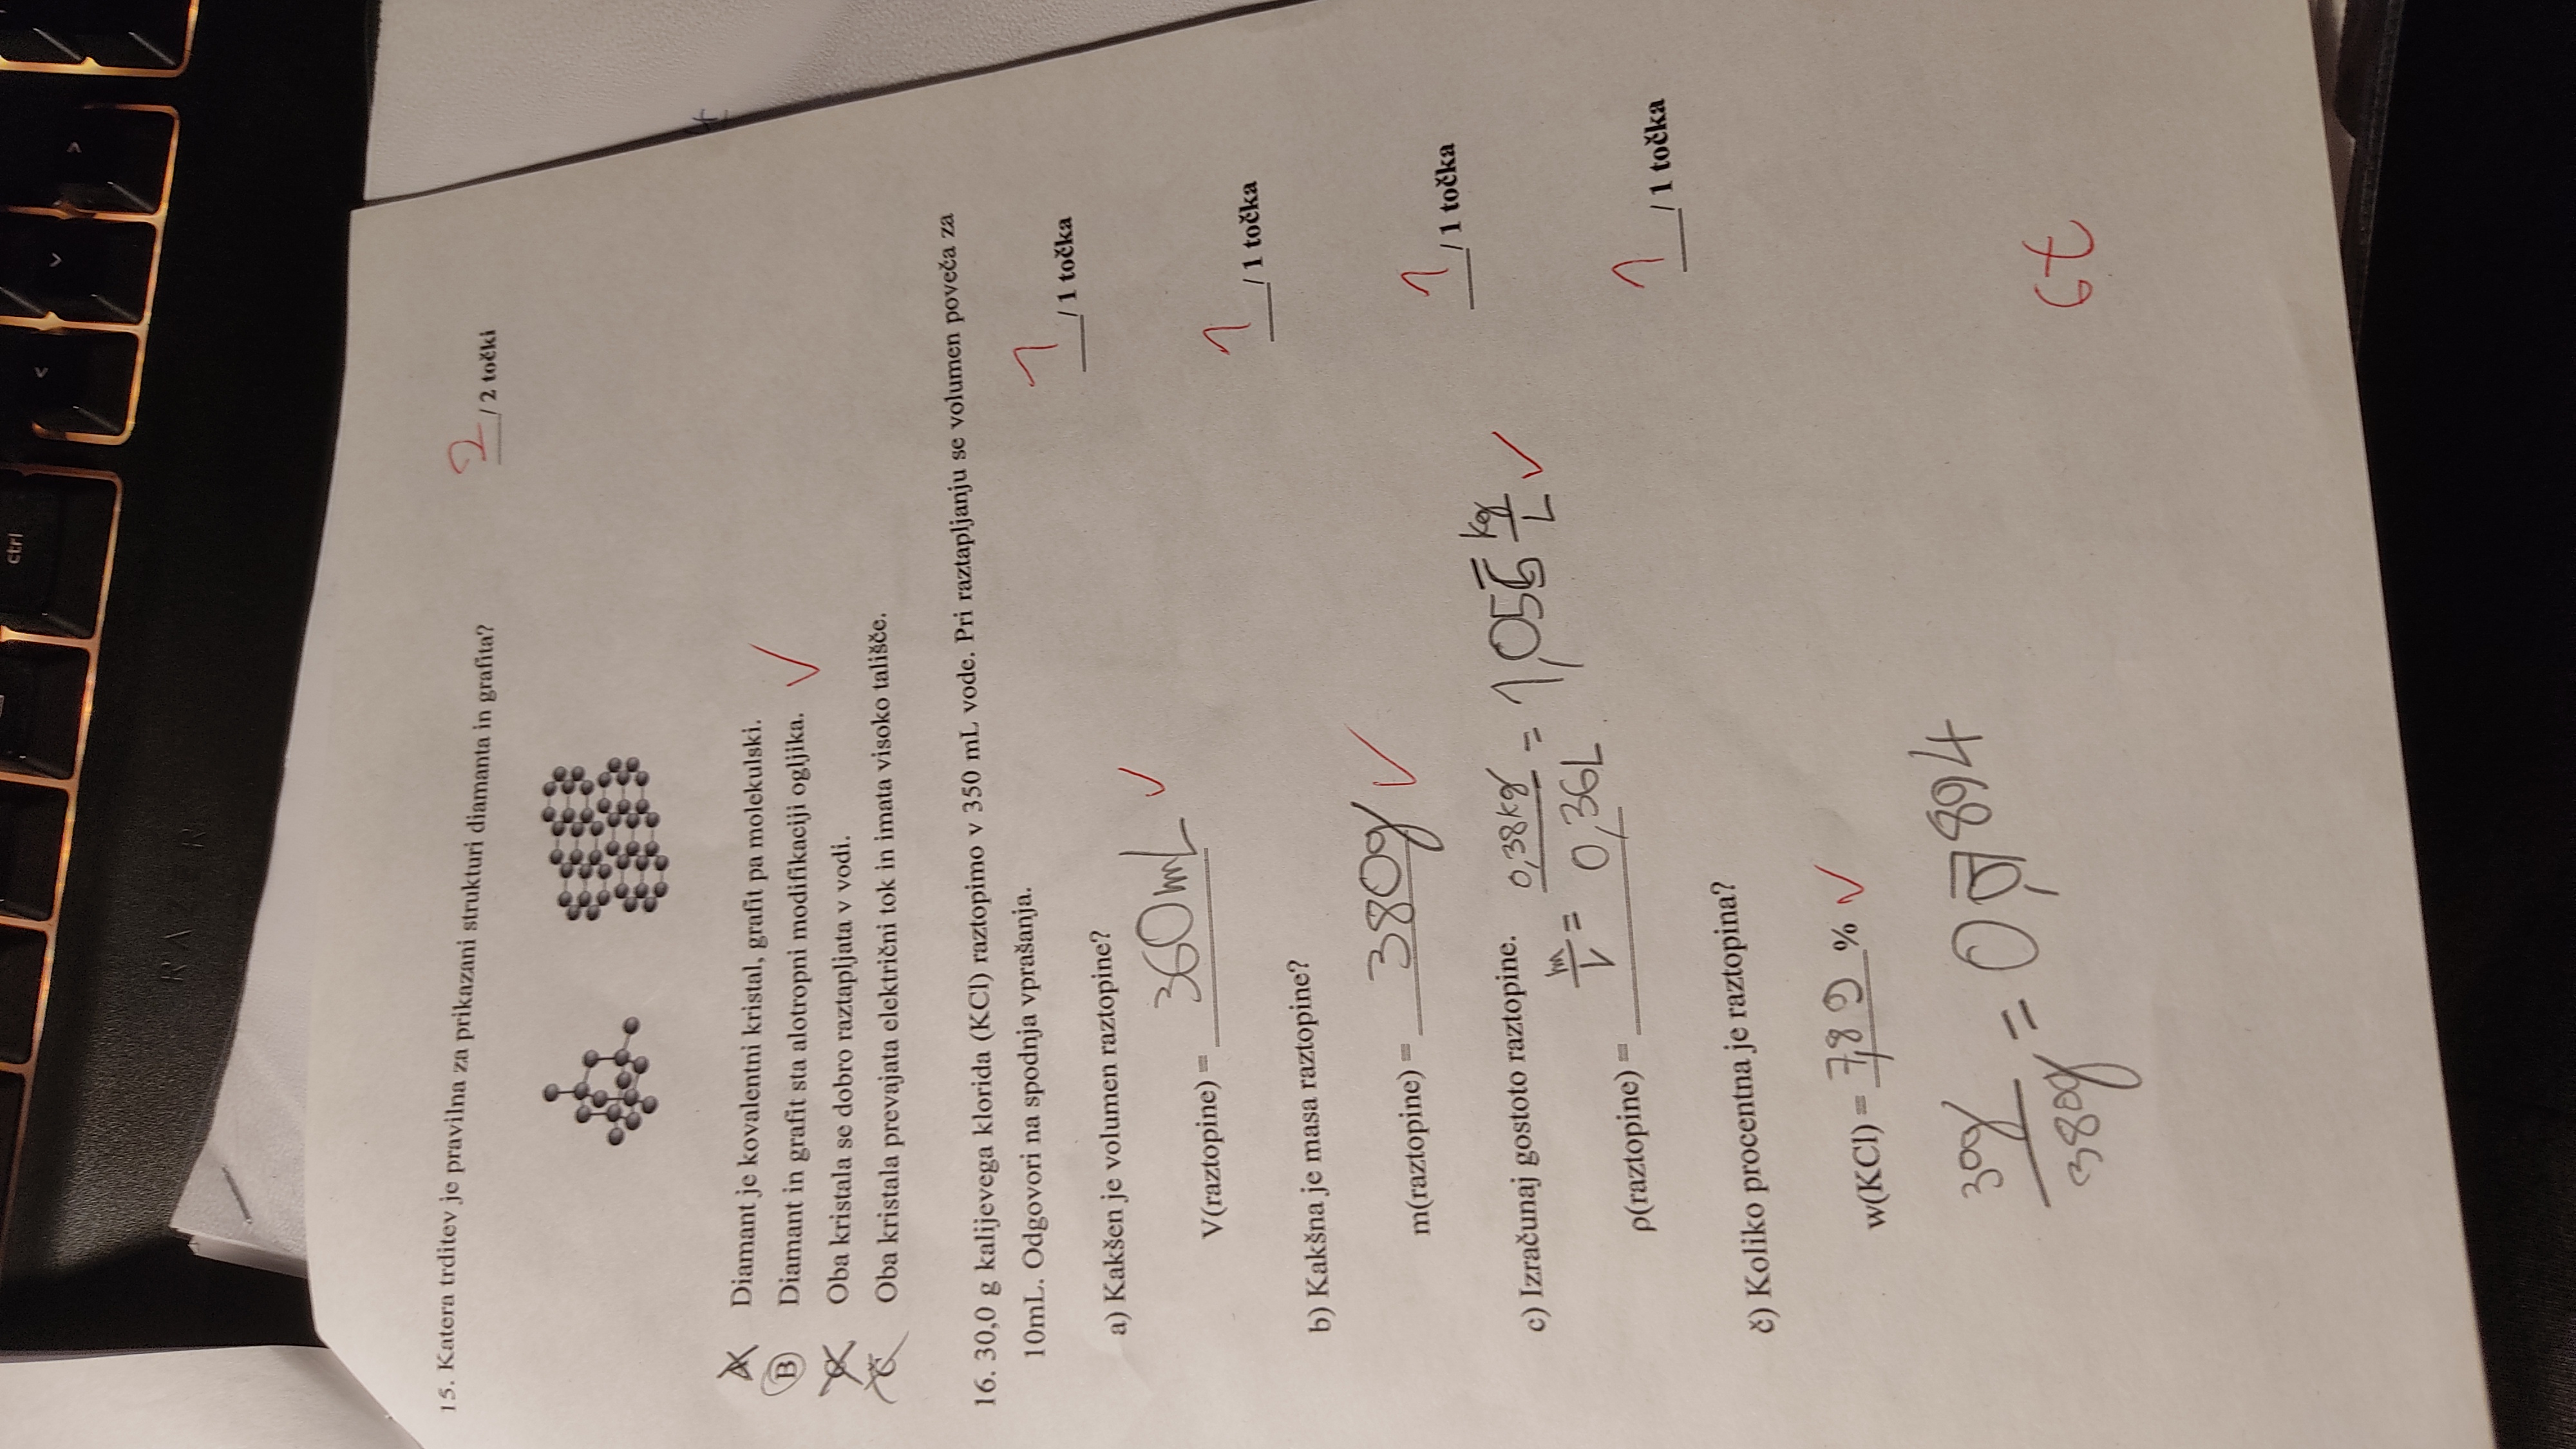 ctrl
<
>
RAZER
15. Katera trditev je pravilna za prikazani strukturi diamanta in grafita?
2 / 2 točki
A Diamant je kovalentni kristal, grafit pa molekulski.
B Diamant in grafit sta alotropni modifikaciji ogljika. ✓
C Oba kristala se dobro raztapljata v vodi.
Č Oba kristala prevajata električni tok in imata visoko tališče.
16. 30,0 g kalijevega klorida (KCl) raztopimo v 350 mL vode. Pri raztapljanju se volumen poveča za
10mL. Odgovori na spodnja vprašanja.
1 / 1 točka
a) Kakšen je volumen raztopine?
V(raztopine) = 360mL ✓
1 / 1 točka
b) Kakšna je masa raztopine?
m(raztopine) = 380g ✓
1 / 1 točka
c) Izračunaj gostoto raztopine.
m/V = 0,38kg / 0,36L = 1,056 kg/L ✓
ρ(raztopine) =
1 / 1 točka
č) Koliko procentna je raztopina?
w(KCl) = 7,89 % ✓
30g / 380g = 0,07894
6t